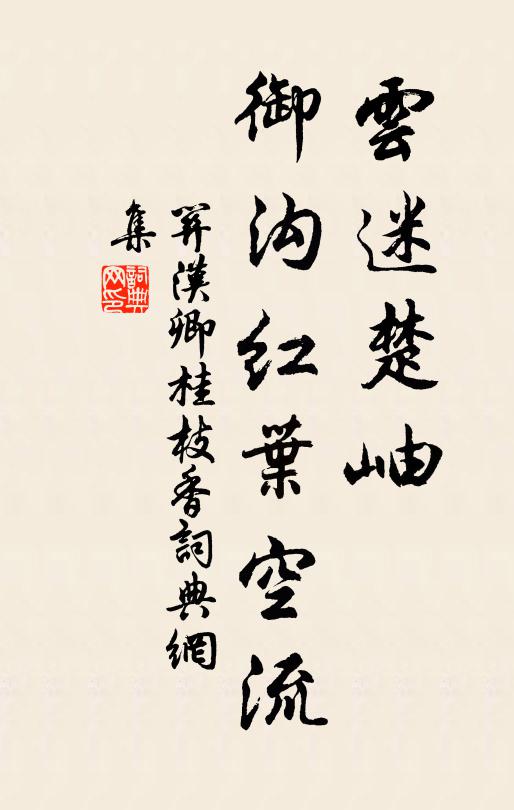 雲迷楚岫
御沟红葉空流
关漢卿桂枝香詞典網
集
詞典網印